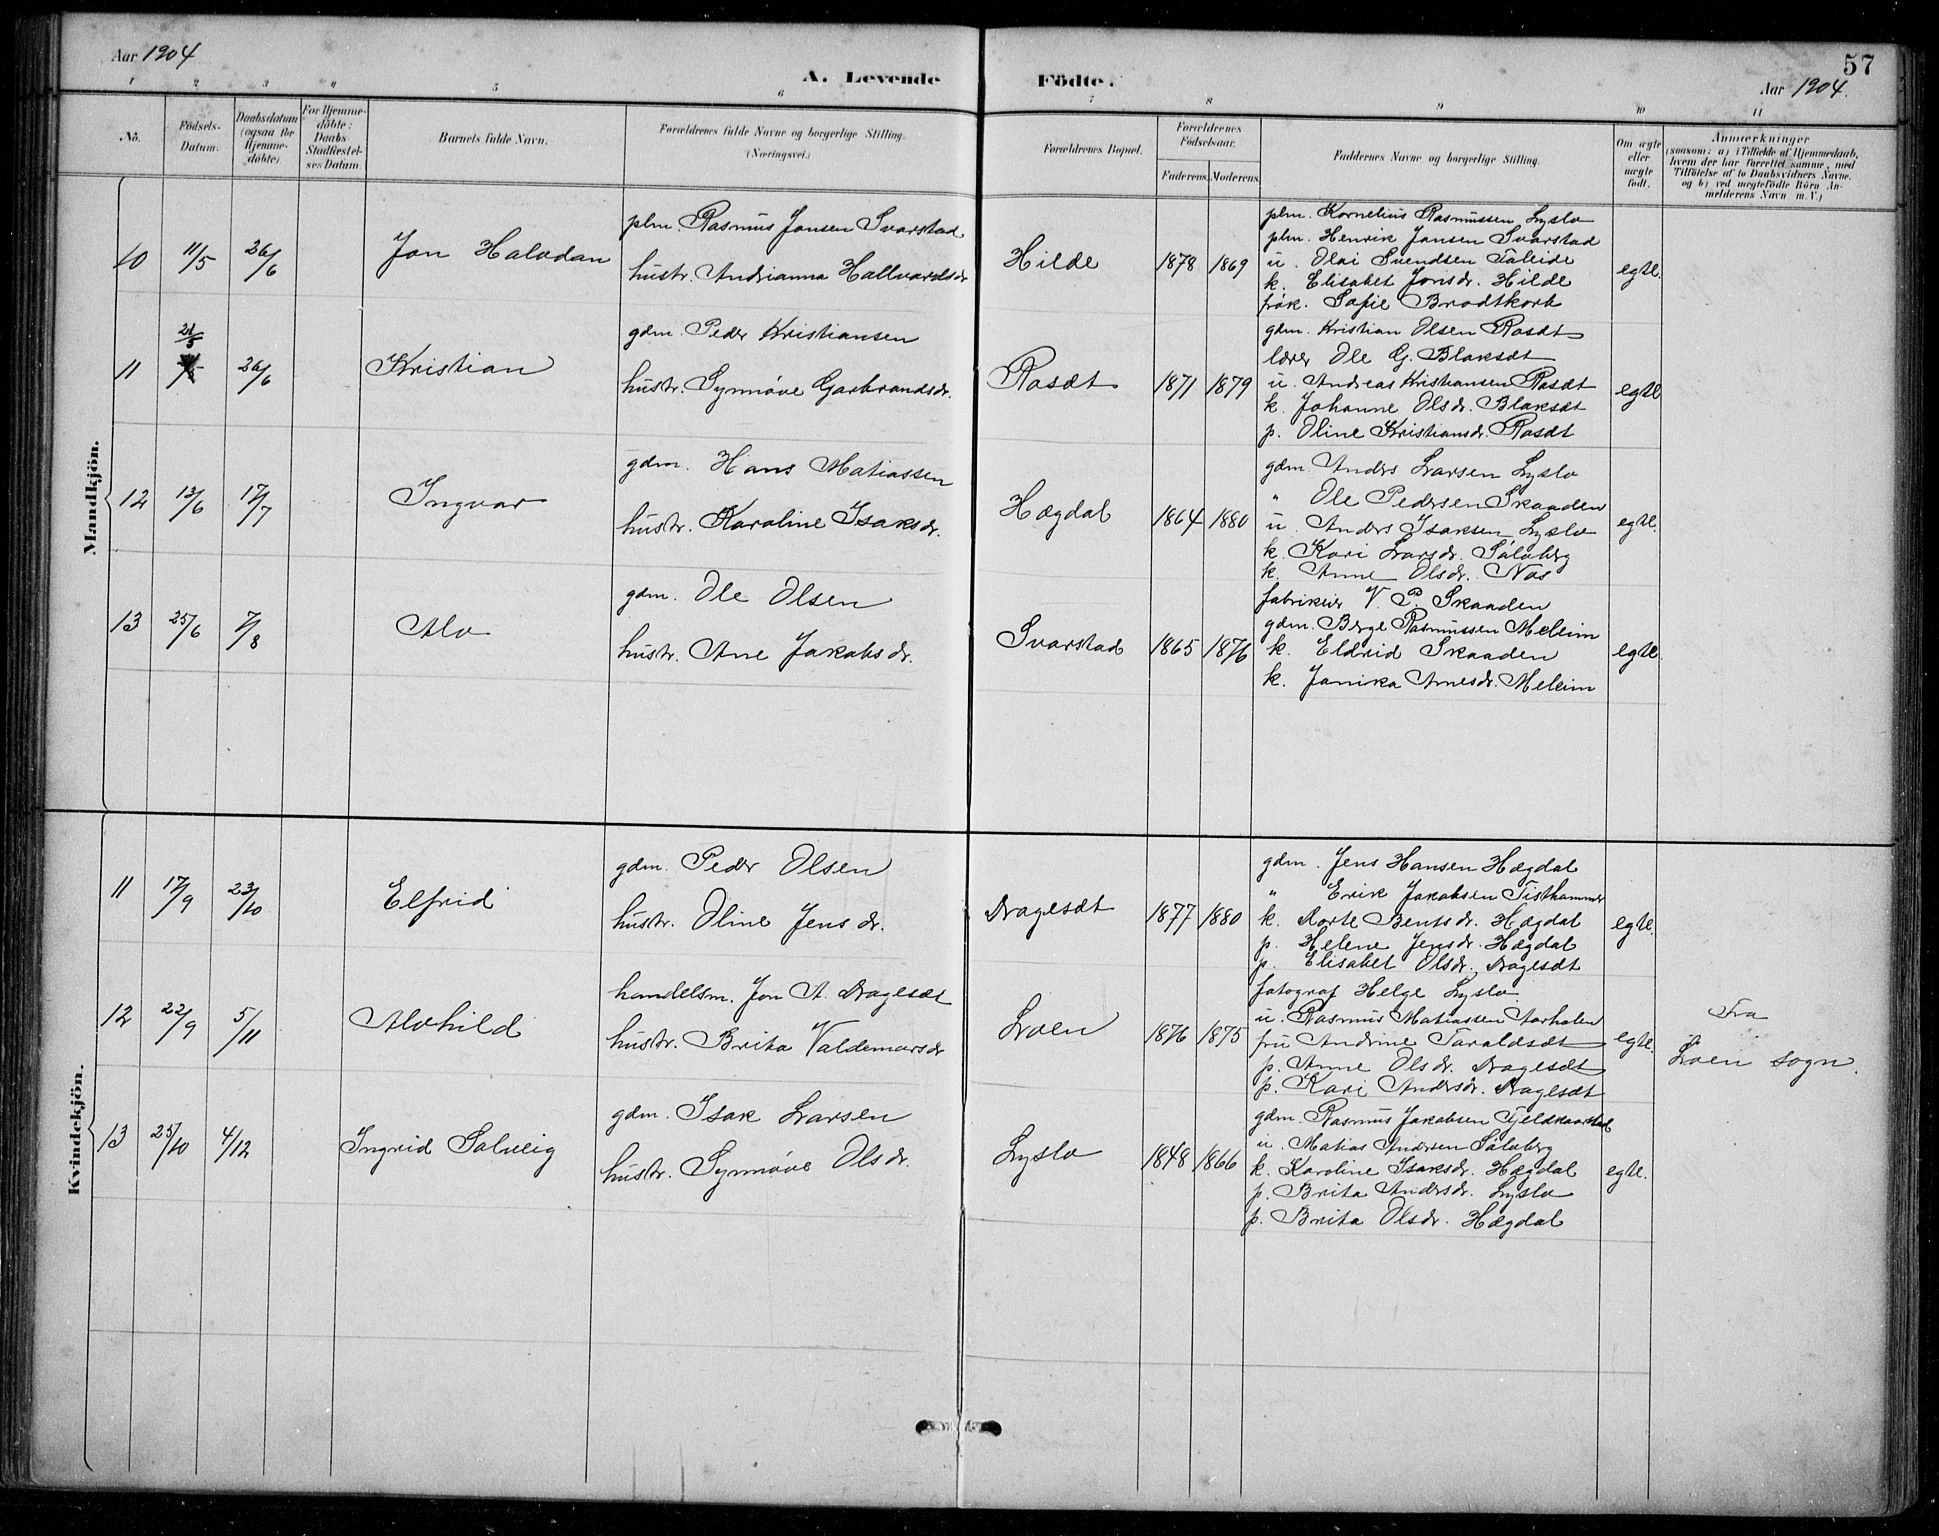 Aar 1904
A. Levende Födte.
57
Aar 1904.
1 2 3 4 5 6 7 8 9 10 11
No.
Födsels-Datum.
Daabsdatum (ogsaa for Hjemme-döbte).
For Hjemme-döbte: Daabs Stadfæstel-ses Datum.
Barnets fulde Navn.
Forældrenes fulde Navne og borgerlige Stilling. (Næringsvei.)
Forældrenes Bopæl.
Forældrenes Födselsaar.
Faderens. Moderens.
Faddernes Navne og borgerlige Stilling.
Om ægte eller uægte födt.
Anmærkninger
(saasom: a) i Tilfælde af Hjemmedaab,
hvem der har forrettet samme, med
Tilföielse af to Daabsvidners Navne.
og b) ved uægtefödte Börn An-
melderens Navn m. V.)
Mandkjön.
10 11/5 26/6 Jon Halvdan
plm. Rasmus Jonsen Svarstad
hustr. Andrianna Hallvardsdr
Hilde 1878 1869
plm. Kornelius Rasmussen Lyslo
plm. Henrik Jansen Svarstad
u. Olai Svendsen Faleide
k. Elisabet Jonsdr. Hilde
frøk. Sofie Brodtkorb
egte.
11 21/5 26/6 Kristian
gdm. Peder Kristiansen
hustr. Synnøve Garbrandsdr.
Rosdt 1871 1879
gdm. Kristian Olsen Rosdt
lærer Ole G. Blaksdt
u. Andreas Kristiansen Rosdt
k. Johanne Olsdr. Blaksdt
p. Oline Kristiansdr. Rosdt
egte
12 13/6 17/7 Ingvar
gdm. Hans Matiassen
hustr. Karoline Isaksdr.
Hægdal 1864 1880
gdm Anders Larsen Lyslo
" Ole Pedersen Skaaden
u. Anders Isaksen Lyslo
k. Kari Larsdr. Sølvberg
k. Anne Olsdr. Nos
egte.
13 25/6 7/8 Alv
gdm. Ole Olsen
hustr. Ane Jakobsdr.
Svarstad 1865 1876
fabrikeier V. P. Skaaden
gdm. Berge Rasmussen Meleim
k. Eldrid Skaaden
k. Janika Arnesdr. Meleim
egte.
Kvindekjön.
11 17/9 23/10 Elfrid
gdm. Peder Olsen
hustr. Oline Jensdr.
Dragesdt 1877 1880
gdm. Jens Hansen Hægdal
" Erik Jakobsen Tisthammer
k. Dorte Bentsdr. Hægdal
p. Helene Jensdr. Hægdal
p. Elisabet Olsdr. Dragesdt
egte.
12 22/9 5/11 Alvhild
handelsm. Jon A. Dragesdt
hustr. Brita Valdemarsdr
Loen 1876 1875
fotograf Helge Lyslo
u. Rasmus Matiassen Aarholen
fru Andrine Taraldsdt
p. Anne Olsdr. Dragesdt
p. Kari Andersdr. Dragesdt
egte.
Fra
Loen sogn.
13 25/10 4/12 Ingrid Solveig
gdm. Isak Larsen
hustr. Synnøve Olsdr.
Lyslo 1848 1866
gdm. Rasmus Jakobsen Fjeldkaarstad
u. Matias Andersen Sølvberg
k. Karoline Isaksdr. Hægdal
p. Brita Andersdr. Lyslo
p. Brita Olsdr. Hægdal
egte.